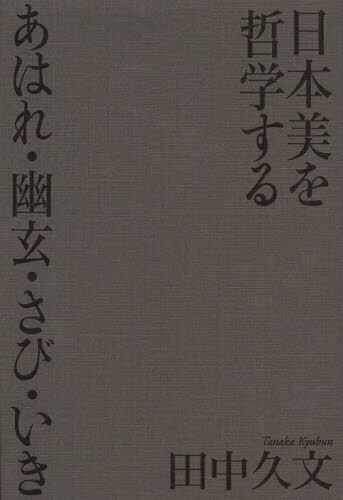 日本美を
哲学する
あはれ・幽玄・さび・いき
Tanaka Kyubun
田中久文